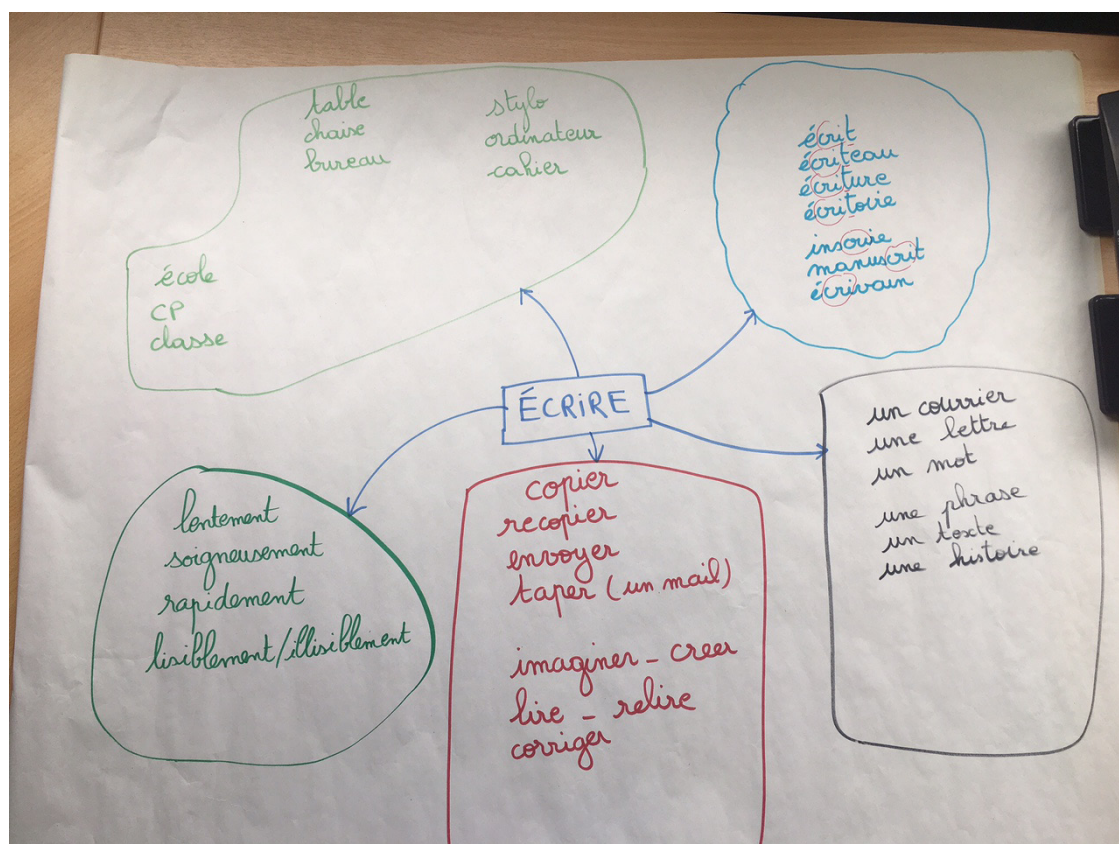 table
chaise
bureau
stylo
ordinateur
cahier
école
CP
classe
écrit
écriteau
écriture
écritoire
inscrire
manuscrit
écrivain
ÉCRIRE
un courrier
une lettre
un mot
une phrase
un texte
une histoire
lentement
soigneusement
rapidement
lisiblement/illisiblement
copier
recopier
envoyer
taper (un mail)
imaginer - creer
lire - relire
corriger